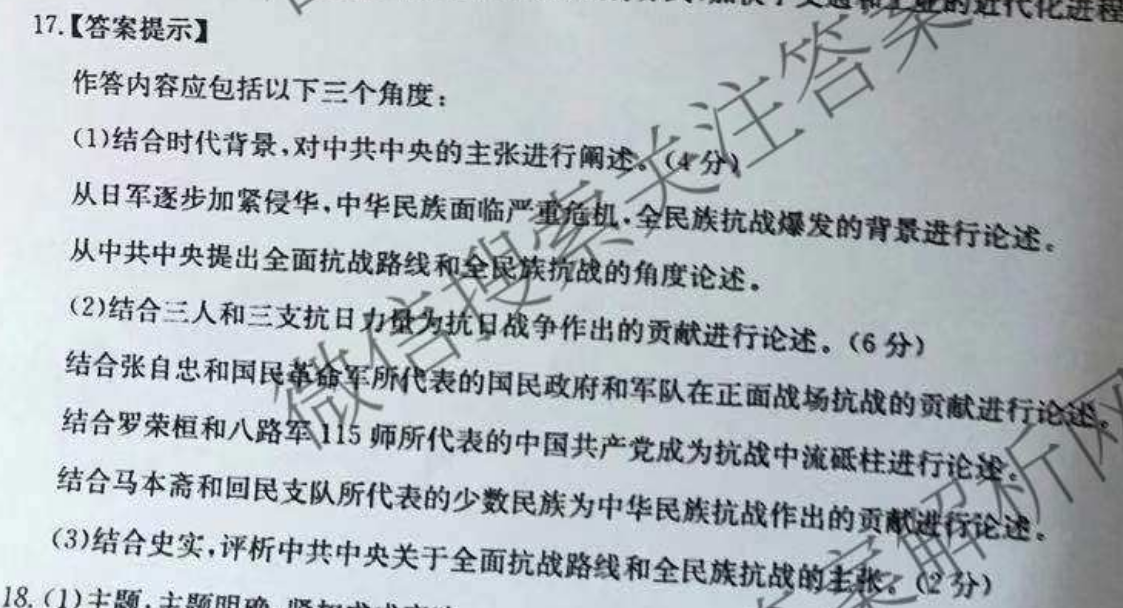 业的近代化进程
17.【答案提示】
作答内容应包括以下三个角度:
(1)结合时代背景,对中共中央的主张进行阐述。(4分)
从日军逐步加紧侵华,中华民族面临严重危机,全民族抗战爆发的背景进行论述。
从中共中央提出全面抗战路线和全民族抗战的角度论述。
(2)结合三人和三支抗日力量为抗日战争作出的贡献进行论述。(6分)
结合张自忠和国民革命军所代表的国民政府和军队在正面战场抗战的贡献进行论述。
结合罗荣桓和八路军115师所代表的中国共产党成为抗战中流砥柱进行论述。
结合马本斋和回民支队所代表的少数民族为中华民族抗战作出的贡献进行论述。
(3)结合史实,评析中共中央关于全面抗战路线和全民族抗战的主张。(2分)
18.(1)主题:主题明确
微信搜索关注答案
案解析网